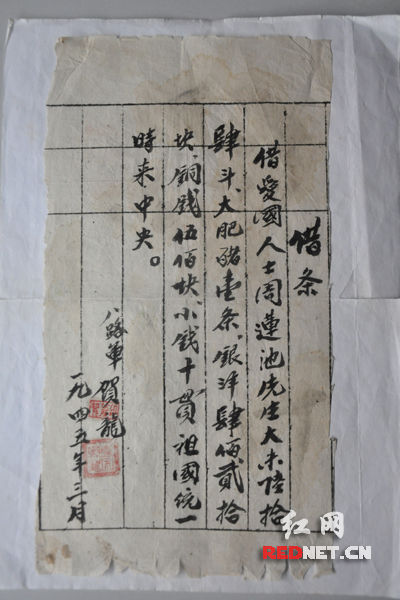 借条
借愛國人士周蓮池先生大米陸拾
肆斗、大肥豬壹条、銀洋肆佰貳拾
块、銅钱伍佰块、小钱十贯、祖國統一
時来中央。
八路軍 賀龍
一九四五年三月
红网
REDNET.CN